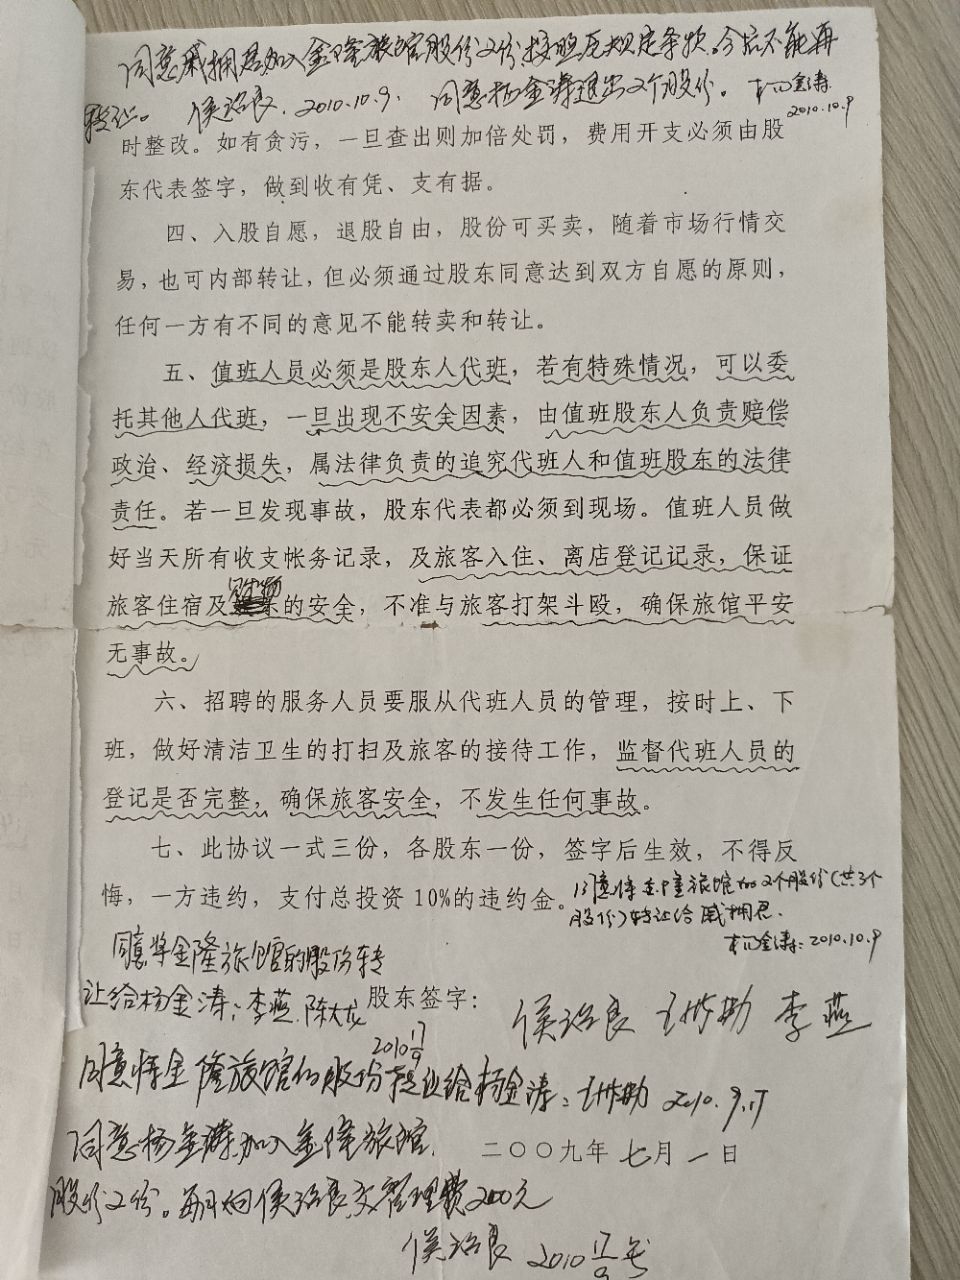 同意戚拥君加入金隆旅馆股份2份,按照原规定条款。今后不能再
转让。 侯治良. 2010.10.9. 同意杨金涛退出2个股份。 杨金涛
2010.10.9
时整改。如有贪污，一旦查出则加倍处罚，费用开支必须由股
东代表签字，做到收有凭、支有据。
四、入股自愿，退股自由，股份可买卖，随着市场行情交
易，也可内部转让，但必须通过股东同意达到双方自愿的原则，
任何一方有不同的意见不能转卖和转让。
五、值班人员必须是股东人代班，若有特殊情况，可以委
托其他人代班，一旦出现不安全因素，由值班股东人负责赔偿
政治、经济损失，属法律负责的追究代班人和值班股东的法律
责任。若一旦发现事故，股东代表都必须到现场。值班人员做
好当天所有收支帐务记录，及旅客入住、离店登记记录，保证
旅客住宿及财物的安全，不准与旅客打架斗殴，确保旅馆平安
无事故。
六、招聘的服务人员要服从代班人员的管理，按时上、下
班，做好清洁卫生的打扫及旅客的接待工作，监督代班人员的
登记是否完整，确保旅客安全，不发生任何事故。
七、此协议一式三份，各股东一份，签字后生效，不得反
悔，一方违约，支付总投资10%的违约金。
同意将金隆旅馆的2个股份(共3个
股份)转让给戚拥君.
杨金涛: 2010.10.9
同意将金隆旅馆的股份转
让给杨金涛: 李燕 陈大龙
2010 17/9
股东签字: 侯治良 李燕
同意将金隆旅馆的股份转让给杨金涛: 2010.9.17
同意杨金涛加入金隆旅馆
二〇〇九年七月一日
股份2份。每月向侯治良交管理费200元
侯治良 2010 17/9号